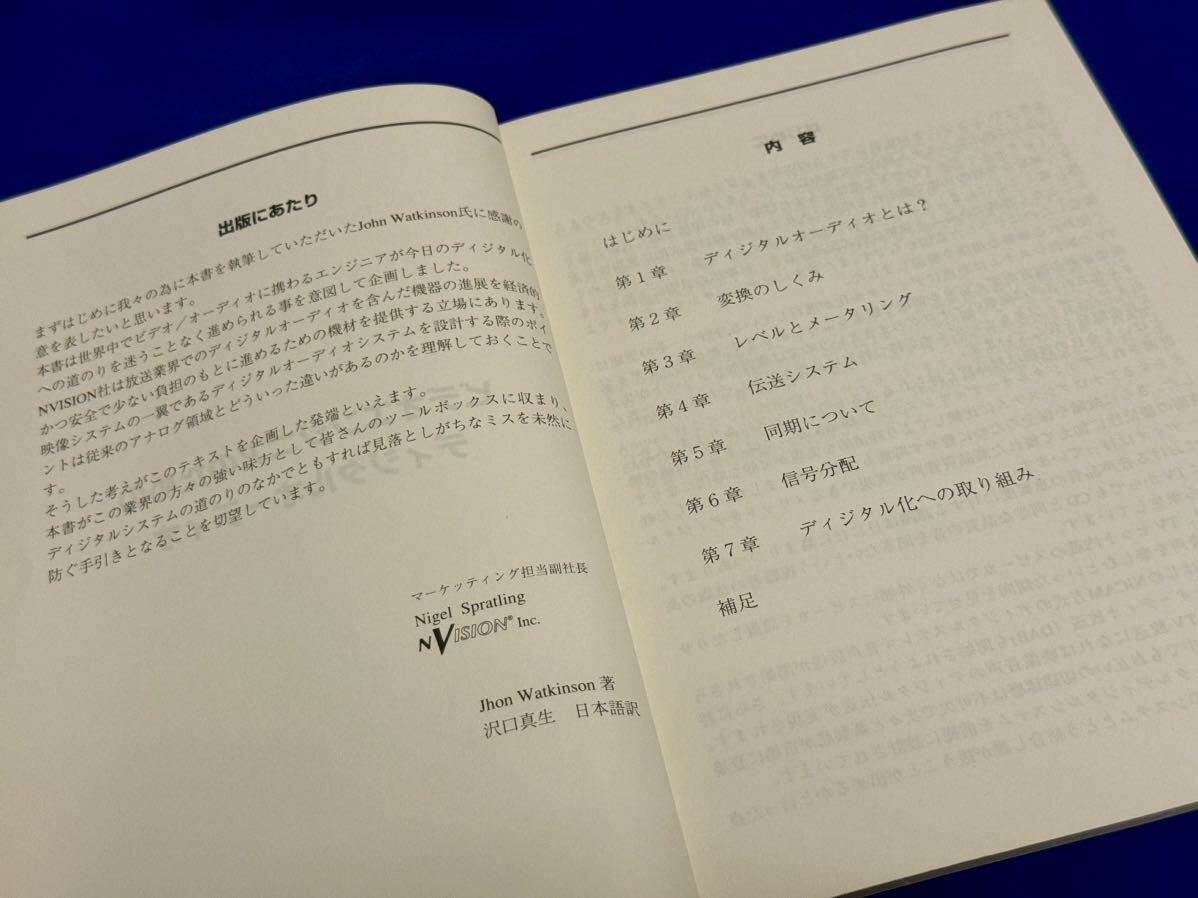 出版にあたり
まずはじめに我々の為に本書を執筆していただいたJohn Watkinson氏に感謝の
意を表したいと思います。
本書は世界中でビデオ／オーディオに携わるエンジニアが今日のディジタル化
への道のりを迷うことなく進められる事を意図して企画しました。
NVISION社は放送業界でのディジタルオーディオを含んだ機器の進展を経済的
かつ安全で少ない負担のもとに進めるための機材を提供する立場にあります。
映像システムの一翼であるディジタルオーディオシステムを設計する際のポイ
ントは従来のアナログ領域とどういった違いがあるのかを理解しておくことで
す。
そうした考えがこのテキストを企画した発端といえます。
本書がこの業界の方々の強い味方として皆さんのツールボックスに収まり、
ディジタルシステムの道のりのなかでともすれば見落としがちなミスを未然に
防ぐ手引きとなることを切望しています。
マーケッティング担当副社長
Nigel Spratling
NVISION® Inc.
Jhon Watkinson 著
沢口真生　日本語訳
内　容
はじめに
第1章　ディジタルオーディオとは？
第2章　変換のしくみ
第3章　レベルとメータリング
第4章　伝送システム
第5章　同期について
第6章　信号分配
第7章　ディジタル化への取り組み
補足